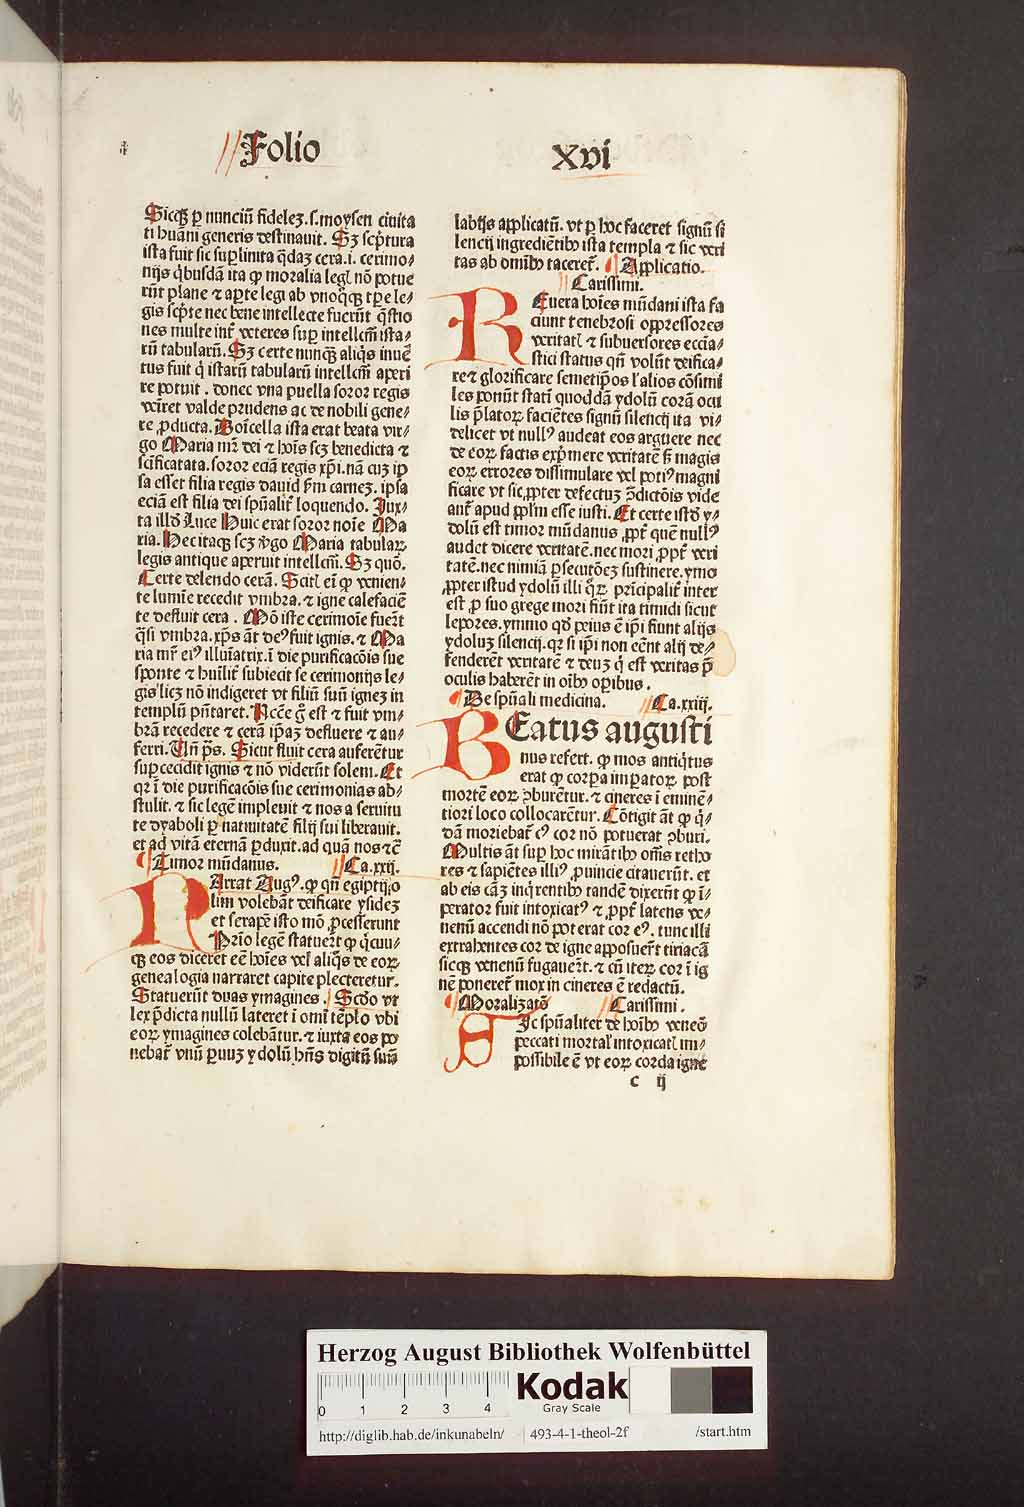 Folio
Xvi
Sicqꝫ ꝑ nunciū fidelez .s. moysen ciuita
ti humani generis destinauit. Sꝫ scṗtura
ista fuit sic suꝑlinita q̇dāꝫ cera .i. cerimo⸗
nijs q̇busdā ita ꝙ moralia legꝭ nō potue
rūt plane ⁊ aꝑte legi ab vnoq̇qꝫ tꝑe le⸗
gis scṗte nec bene intellecte fuerūt q̄stio
nes multe int̄ veteres suꝑ intellcm̄ ista⸗
rū tabularū. Sꝫ certe nunqꝫ aliq̇s inuē
tus fuit q̇ istarū tabularū intellcm̄ aperi
re potuit. donec vna puella soror regis
veīret valde prudens ac de nobili gene⸗
re ꝓducta. Domicella ista erat beata vir⸗
go Maria mr̄ dei ⁊ hoīs scꝫ benedicta ⁊
scificatata. soror eciā regis xp̄i. nā cuꝫ ip̄
sa esset filia regis dauid ẜm carneꝫ. ipsa
eciā est filia dei spūalit̄ loquendo. Jux⸗
ta illd̄ Luce Huic erat soror noīe Ma
ria. Hec itaqꝫ scꝫ v̇go Maria tabularꝝ
legis antique aperuit intellcm̄. Sꝫ quō.
Certe delendo cerā. Scitꝭ em̄ ꝙ venien⸗
te lumīe recedit vmbra. ⁊ igne calefaciē
te defluit cera. Mō iste cerimoīe fuer̄t
q̄si vmbra. xp̄s āt deꝰ fuit ignis. ⁊ Ma
ria mr̄ eiꝰ illuīatrix. ī die purificacōis sue
sponte ⁊ hūilit̄ subiecit se cerimonijs le⸗
gis licꝫ nō indigeret vt filiū suū igneꝫ in
templū pn̄taret. Ncc̄e g̊ est ⁊ fuit vm⸗
brā recedere ⁊ cerā ip̄aꝫ defluere ⁊ au⸗
ferri. Vn̄ pˢ. Sicut fluit cera auferētur
suꝑcecidit ignis ⁊ nō viderūt solem. Et
qꝛ ī die purificacōis sue cerimonias ab⸗
stulit. ⁊ sic legē impleuit ⁊ nos a seruitu
te dyaboli ꝑ natiuitatē filij sui liberauit.
et ad vitā eternā ꝑduxit. ad quā nos ⁊cē
¶ Timor mūdanus. Ca. xxij.
NArrat Augꝰ. ꝙ qn̄ egiptij o
lim volebāt deificare ysideꝫ
et serape īsto mō ꝓcesserunt
Prīo legē statuer̄t ꝙ q̇cuu⸗
qꝫ eos diceret eē hoīes vel̄ aliq̇s de eoꝝ
genealogia narraret capite plecteretur.
Statuerūt duas ymagines. Scd̊o vt
lex p̄dicta nullū lateret ī omī tēplo vbi
eoꝝ ymagines colebātur. ⁊ iuxta eos po
nebat̄ vnū ꝑuuꝫ ydolū hn̄s digitū suū
labijs applicatū. vt ꝑ hoc faceret signū si
lencij ingrediētibꝰ ista templa ⁊ sic veri
tas ab omībꝰ taceret̄. ¶ Applicatio.
Carissimi.
REuera hoīes mūdani ista fa
ciunt tenebrosi oppressores
veritatꝭ ⁊ subuersores eccīa⸗
stici status qn̄ volūt deifica⸗
re ⁊ glorificare semetip̄os l̓ alios cōsimi
les ponūt stati quoddā ydolū corā ocu
lis p̄latoꝝ faciētes signū silencij ita vi⸗
delicet vt nullꝰ audeat eos arguere nec
de eoꝝ factis exp̄mere veritatē ẜ magis
eoꝝ errores dissimulare vel potiꝰ magni
ficare vt sic ꝓpter defectuꝫ p̄dictōis vide
ant̄ apud pplm̄ esse iusti. Et certe istd̄ y⸗
dolū est timor mūdanus ꝓpt̄ quē nullꝰ
audet dicere veritatē. nec mori ꝓpt̄ veri
tatē. nec nimiā ꝑsecutōeꝫ sustinere. ymo
ꝓpter istud ydolū illi q̊ꝝ prīcipalit̄ inter
est ꝓ suo grege mori fiūt ita timidi sicut
lepores. ymmo qd̄ peius ē ip̄i fiunt alijs
ydoluꝫ silencij. qꝛ si ip̄i non eēnt alij de⸗
fenderēt veritatē ⁊ deuꝫ q̇ est veritas p̄
oculis haberēt in oībꝰ oꝑibus.
¶ De spūali medicina. Ca. xxiij.
BEatus augusti
nus refert. ꝙ mos antiq̇tus
erat ꝙ corꝑa imꝑatoꝝ post
mortē eoꝝ ꝯburētur. ⁊ cineres ī eminē⸗
tiori loco collocarētur. Cōtigit āt ꝙ q̇⸗
dā moriebat̄ cꝰ cor nō potuerat ꝯburi.
Multis āt suꝑ hoc mirātibꝰ om̄s retho
res ⁊ sapiētes illiꝰ ꝓuincie citauerūt. et
ab eis cāꝫ inq̇rentibꝰ tandē dixerūt ꝙ ī⸗
perator fuit intoxicatꝰ ⁊ ꝓpt̄ latens ve⸗
nenū accendi nō poterat cor eꝰ. tunc illi
extrahentes cor de igne apposuer̄t tiriacā
sicqꝫ venenū fugauer̄t. ⁊ cū iteꝝ cor ī ig
nē poneret̄ mox in cineres ē redactū.
¶ Moralizatō Carissimi.
SIc spūaliter de hoībꝰ veneō
peccati mortal̓ intoxicatꝭ im⸗
possibile ē vt eoꝝ corda igne
c ij
Herzog August Bibliothek Wolfenbüttel
0 1 2 3 4
Kodak
Gray Scale
http://diglib.hab.de/inkunabeln/ 493-4-1-theol-2f /start.htm